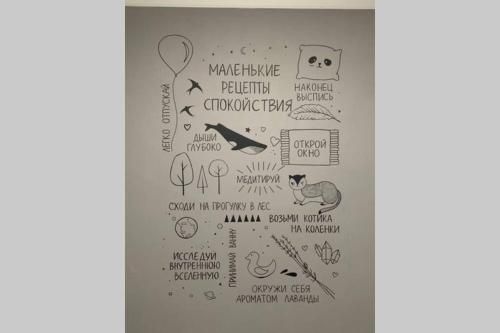 МАЛЕНЬКИЕ
РЕЦЕПТЫ
СПОКОЙСТВИЯ
НАКОНЕЦ
ВЫСПИСЬ
ЛЕГКО ОТПУСКАЙ
ДЫШИ
ГЛУБОКО
ОТКРОЙ
ОКНО
МЕДИТИРУЙ
СХОДИ НА ПРОГУЛКУ В ЛЕС
ВОЗЬМИ КОТИКА
НА КОЛЕНКИ
ИССЛЕДУЙ
ВНУТРЕННЮЮ
ВСЕЛЕННУЮ
ПРИНИМАЙ ВАННУ
ОКРУЖИ СЕБЯ
АРОМАТОМ ЛАВАНДЫ